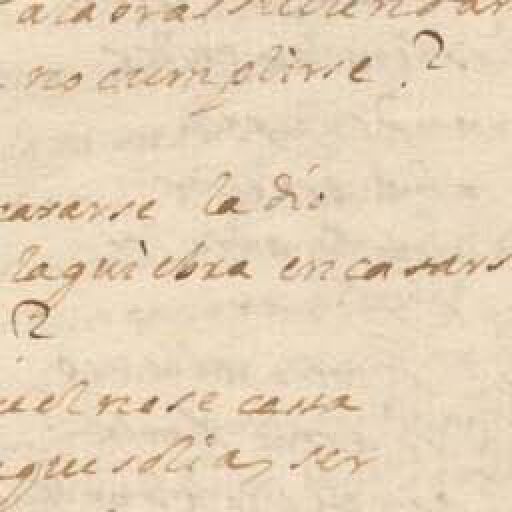 no cumplirse?
casarse la dio
la quiebra en casars
?
el no se cassa
que solias ser